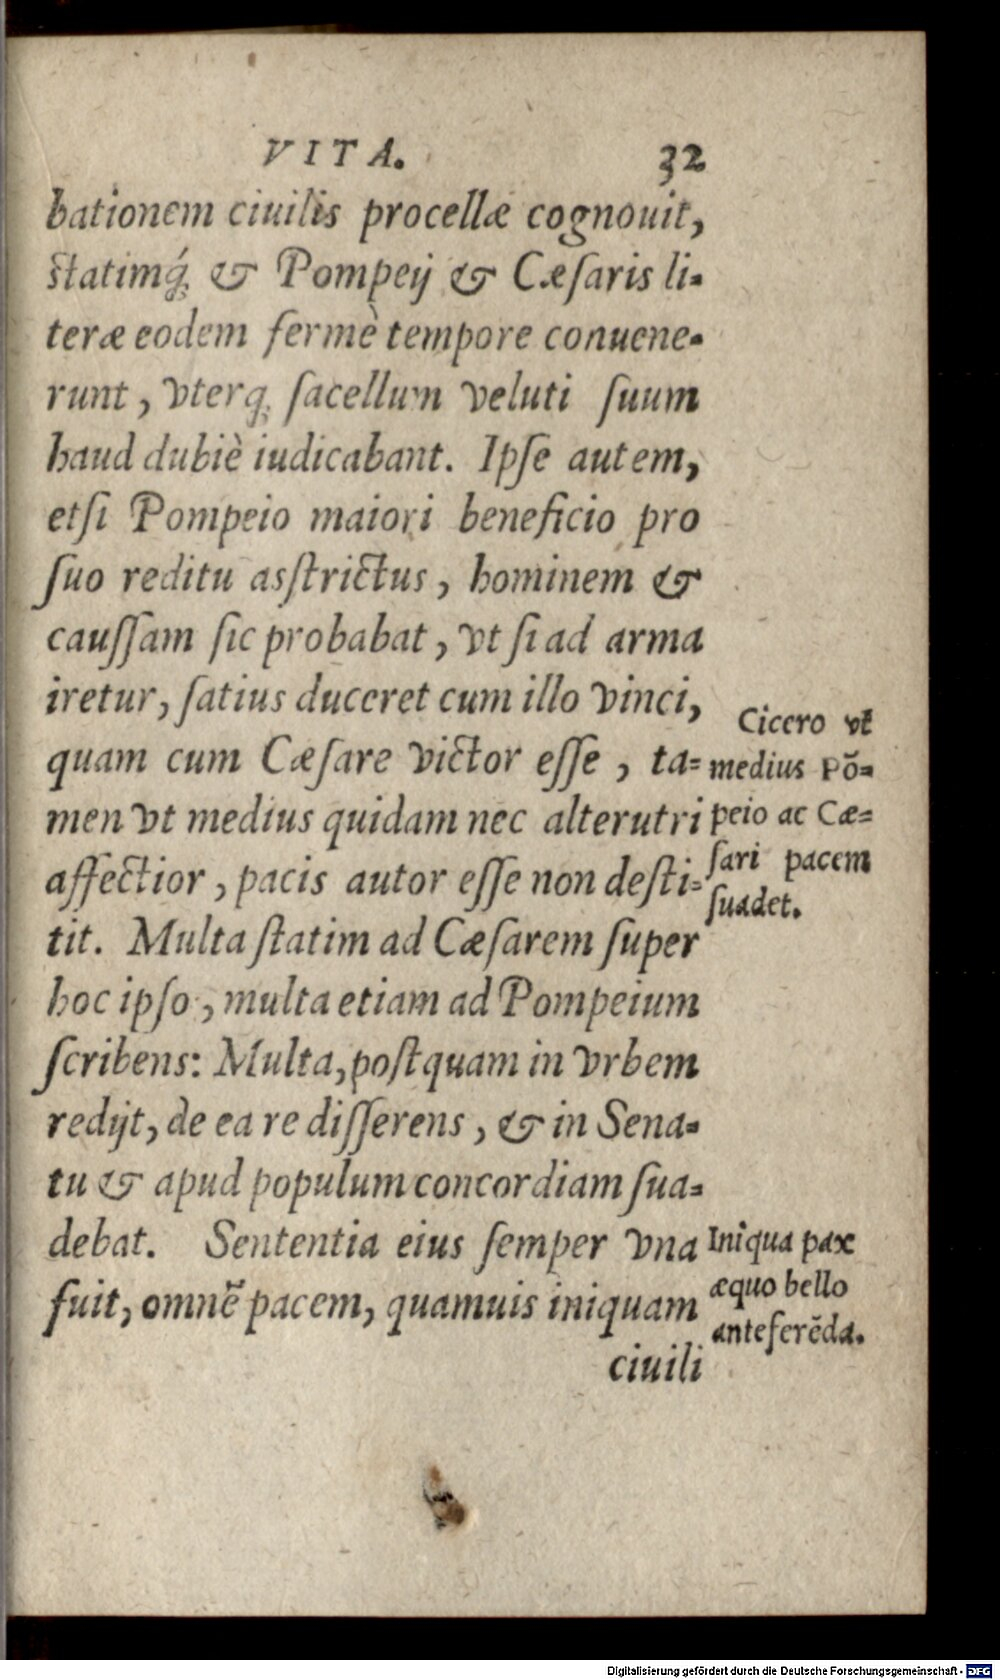 VITA. 32
bationem ciuilis procellæ cognouit,
ſtatimq́; & Pompeij & Cæſaris li-
teræ eodem fermè tempore conuene-
runt, vterq; ſacellum veluti ſuum
haud dubiè iudicabant. Ipſe autem,
etſi Pompeio maiori beneficio pro
ſuo reditu asſtrictus, hominem &
cauſſam ſic probabat, vt ſi ad arma
iretur, ſatius duceret cum illo vinci,
quam cum Cæſare victor eſſe, ta-
men vt medius quidam nec alterutri
affectior, pacis autor eſſe non deſti-
tit. Multa ſtatim ad Cæſarem ſuper
hoc ipſo, multa etiam ad Pompeium
ſcribens: Multa, poſtquam in vrbem
redijt, de ea re diſſerens, & in Sena-
tu & apud populum concordiam ſua-
debat. Sententia eius ſemper vna
fuit, omnẽ pacem, quamuis iniquam
ciuili
Cicero vt
medius Põ-
peio ac Cæ-
ſari pacem
ſuadet.
Iniqua pax
æquo bello
anteferẽda.
Digitalisierung gefördert durch die Deutsche Forschungsgemeinschaft - DFG